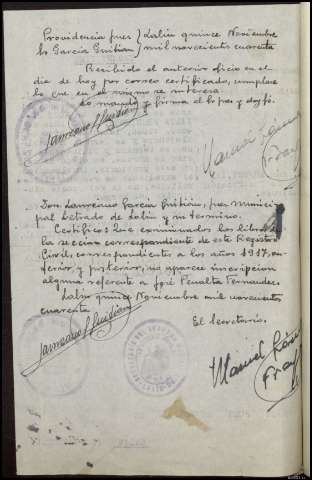 Providencia juez } Lalín quince Noviembre
Sr García Guitian } mil novecientos cuarenta
Recibido el anterior oficio en el
dia de hoy por correo certificado, cumplase
lo que en el mismo se interesa
Lo mando y firma el Sr juez y doy fé.
Laureano G Guitian
Manuel
Fray
Don Laureano García Guitián, juez munici
pal Letrado de Lalín y su termino.
Certifico: Que examinados los libros de
la seccion correspondiente de este Registro
Civil, correspondientes a los años 1917, an-
terior y posterior, no aparece inscripcion
alguna referente a José Penalta Fernandez.
Lalin quince Noviembre mil novecientos
cuarenta
El Secretario.
Laureano G Guitian
Manuel
Fray